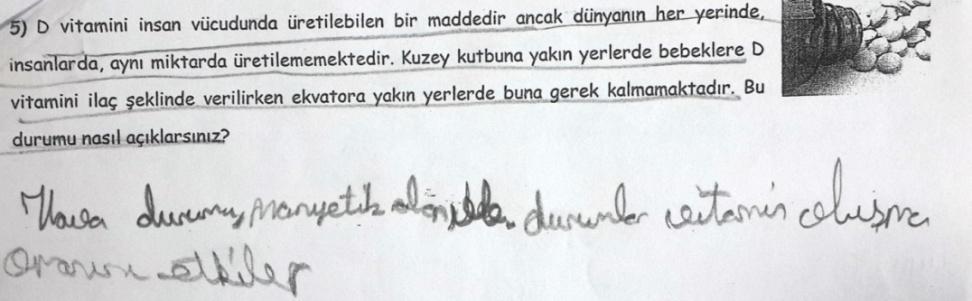 5) D vitamini insan vücudunda üretilebilen bir maddedir ancak dünyanın her yerinde,
insanlarda, aynı miktarda üretilememektedir. Kuzey kutbuna yakın yerlerde bebeklere D
vitamini ilaç şeklinde verilirken ekvatora yakın yerlerde buna gerek kalmamaktadır. Bu
durumu nasıl açıklarsınız?
Hava durumu, manyetik durumlar vitamin oluşma
oranını etkiler